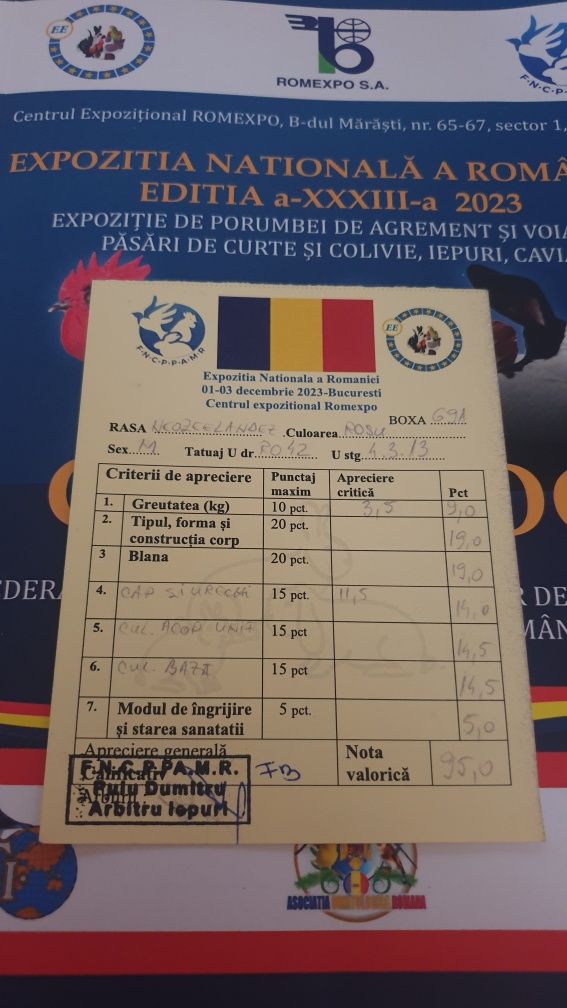 EE
ROMEXPO S.A.
F·N·C·P·P
Centrul Expozițional ROMEXPO, B-dul Mărăști, nr. 65-67, sector 1,
EXPOZITIA NATIONALĂ A ROMÂ
EDITIA a-XXXIII-a 2023
EXPOZIȚIE DE PORUMBEI DE AGREMENT ȘI VOIA
PĂSĂRI DE CURTE ȘI COLIVIE, IEPURI, CAVI
F-N-C-P-P-A-M-R
EE
Expozitia Nationala a Romaniei
01-03 decembrie 2023-Bucuresti
Centrul expozitional Romexpo
BOXA 691
RASA NEOZEELANDEZ Culoarea ROSU
Sex M Tatuaj U dr. RO42 U stg. 4.3.13
Criterii de apreciere Punctaj maxim Apreciere critică Pct
1. Greutatea (kg) 10 pct. 3,5 9,0
2. Tipul, forma și construcția corp 20 pct. 19,0
3 Blana 20 pct. 19,0
4. CAP SI URECHI 15 pct. 11,5 14,0
5. CUL. ACOP UNIF 15 pct 14,5
6. CUL. BAZA 15 pct 14,5
7. Modul de îngrijire și starea sanatatii 5 pct. 5,0
Apreciere generală Nota valorică 95,0
Calificativ FB
Arbitru
F.N.C.P.P.A.M.R.
Puiu Dumitru
Arbitru Iepuri
FEDERA
R DE
MÂN
ASOCIATIA ROMANA